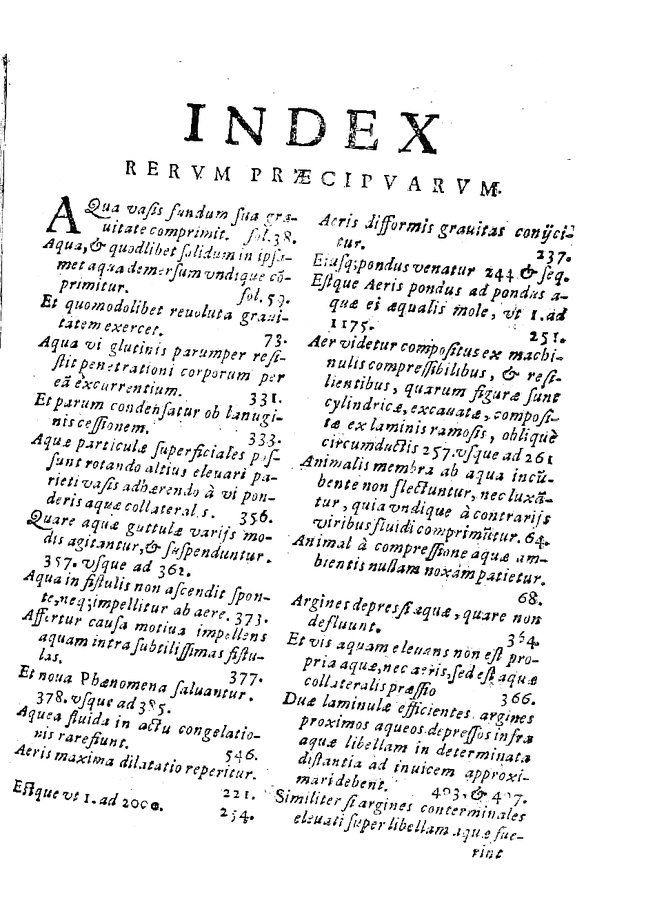 INDEX
RERVM PRÆCIPVARVM.
AQua vasis fundum sua gra-
uitate comprimit. fol.38.
Aqua, & quodlibet solidum in ipsa-
met aqua demersum vndique cõ-
primitur. fol. 59.
Et quomodolibet reuoluta graui-
tatem exercet. 73.
Aqua vi glutinis parumper resi-
stit penetrationi corporum per
eã excurrentium. 331.
Et parum condensatur ob lanugi-
nis cessionem. 333.
Aquæ particulæ superficiales pos-
sunt rotando altius eleuari pa-
rieti vasis adhærendo à vi pon-
deris aquæ collateralis. 356.
Quare aquæ guttulæ varijs mo-
dis agitantur, & suspenduntur.
357. vsque ad 362.
Aqua in fistulis non ascendit spon-
te, neq; impellitur ab aere. 373.
Affertur causa motiua impellens
aquam intra subtilissimas fistu-
las. 377.
Et noua Phænomena saluantur.
378. vsque ad 385.
Aquea fluida in actu congelatio-
nis rarefiunt. 546.
Aeris maxima dilatatio reperitur.
221.
Estque vt 1. ad 2000. 254.
Aeris difformis grauitas conijci-
tur. 237.
Eiusq; pondus venatur 244 & seq.
Estque Aeris pondus ad pondus a-
quæ ei æqualis mole, vt 1. ad
1175. 251.
Aer videtur compositus ex machi-
nulis compressibilibus, & resi-
lientibus, quarum figuræ sunt
cylindricæ, excauatæ, composi-
tæ ex laminis ramosis, obliquè
circumductis 257. vsque ad 261
Animalis membra ab aqua incũ-
bente non flectuntur, nec luxã-
tur, quia vndique à contrarijs
viribus fluidi comprimũtur. 64.
Animal à compressione aquæ am-
bientis nullam noxam patietur.
68.
Argines depressi aquæ, quare non
defluunt. 364.
Et vis aquam eleuans non est pro-
pria aquæ, nec aeris, sed est aquæ
collateralis præssio 366.
Duæ laminulæ efficientes argines
proximos aqueos depressos infra
aquæ libellam in determinata
distantia ad inuicem approxi-
mari debent. 403, & 407.
Similiter si argines conterminales
eleuati super libellam aquæ fue-
rint